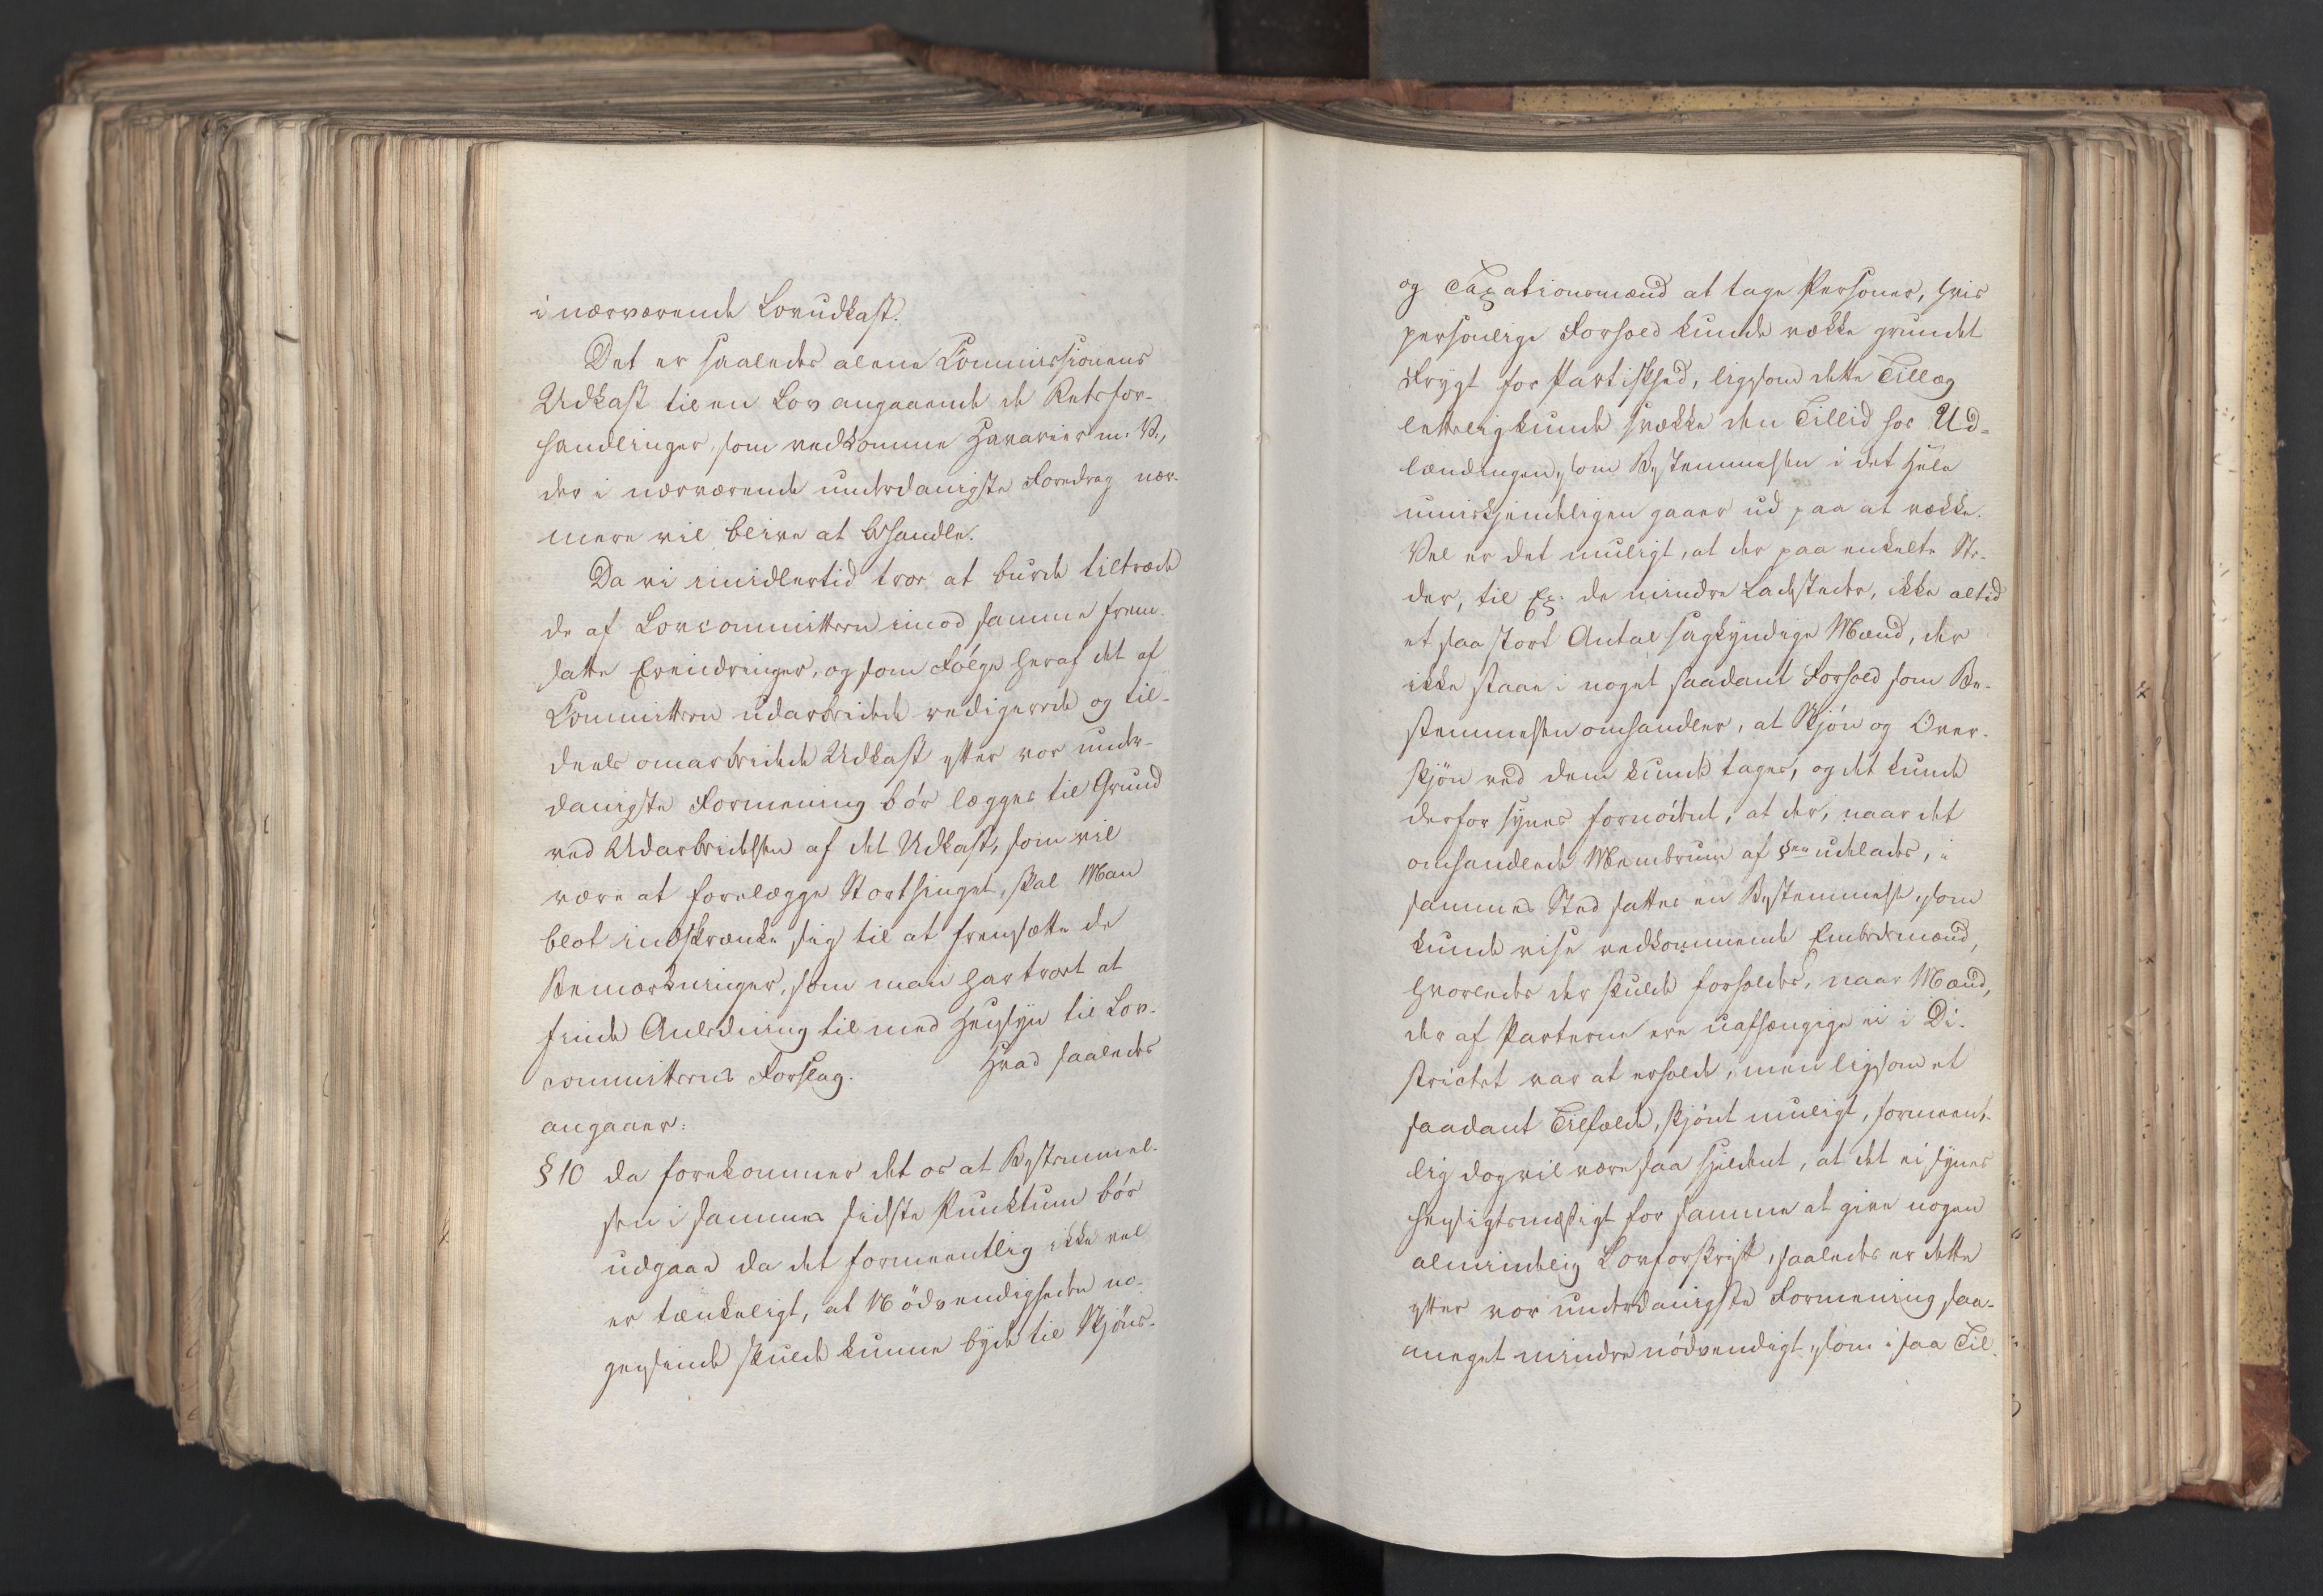 i nærværende Lovudkast.
Det er saaledes alene Commissionens
Udkast til en Lov angaaende de Retsfor-
handlinger, som vedkomme Havarier m. V.,
der i nærværende underdanigste Foredrag nær-
mere vil blive at behandle.
Da vi imidlertid troe at burde tiltræde
de af Lovcommitteen imod samme frem-
satte Erindringer, og som Følge heraf det af
Committeen udarbeidede redigerede og til-
deels omarbeidede Udkast efter vor under-
danigste Formening bør lægges til Grund
ved Udarbeidelsen af det Udkast, som vil
være at forelægge Storthinget, skal Man
blot indskrænke sig til at fremsætte de
Bemærkninger, som man har troet at
finde Anledning til med Hensyn til Lov-
committeens Forslag. Hvad saaledes
angaaer:
§ 10 da forekommer det os at Bestemmel-
sen i sammes sidste Punktum bør
udgaae da det formeentlig ikke vel
er tænkeligt, at Nødvendigheden no-
gensinde skulde kunne byde til Skjøns-
og Taxationsmænd at tage Personer, hvis
personlige Forhold kunde vække grundet
Frygt for Partiskhed, ligesom dette Tillæg
letteligkunde svække den Tillid hos Ud-
lændingen, som Bestemmelsen i det Hele
umiskjendeligen gaaer ud paa at vække.
Vel er det muligt, at der paa enkelte Ste-
der, til Ex: de mindre Ladesteder, ikke altid
et saa stort Antal sagkyndige Mænd, der
ikke staae i noget saadant Forhold som Be-
stemmelsen omhandler, at Skjøn og Over-
skjøn ved dem kunde tages, og det kunde
derfor synes fornødent, at der, naar det
omhandlede Membrum af §en udelades, i
sammes Sted sattes en Bestemmelse, som
kunde vise vedkommende Embedsmænd,
hvorledes der skulde forholdes, naar Mænd,
der af Parterne ere uafhængige ei i Di-
strictet var at erholde, men ligesom et
saadant Tilfælde, skjønt muligt, formeent-
lig dog vil være saa sjeldent, at det ei synes
hensigtsmæssigt for samme at give nogen
almindelig Lovforskrift, saaledes er dette
efter vor underdanigste Formening saa-
meget mindre nødvendigt, som i saa Til-